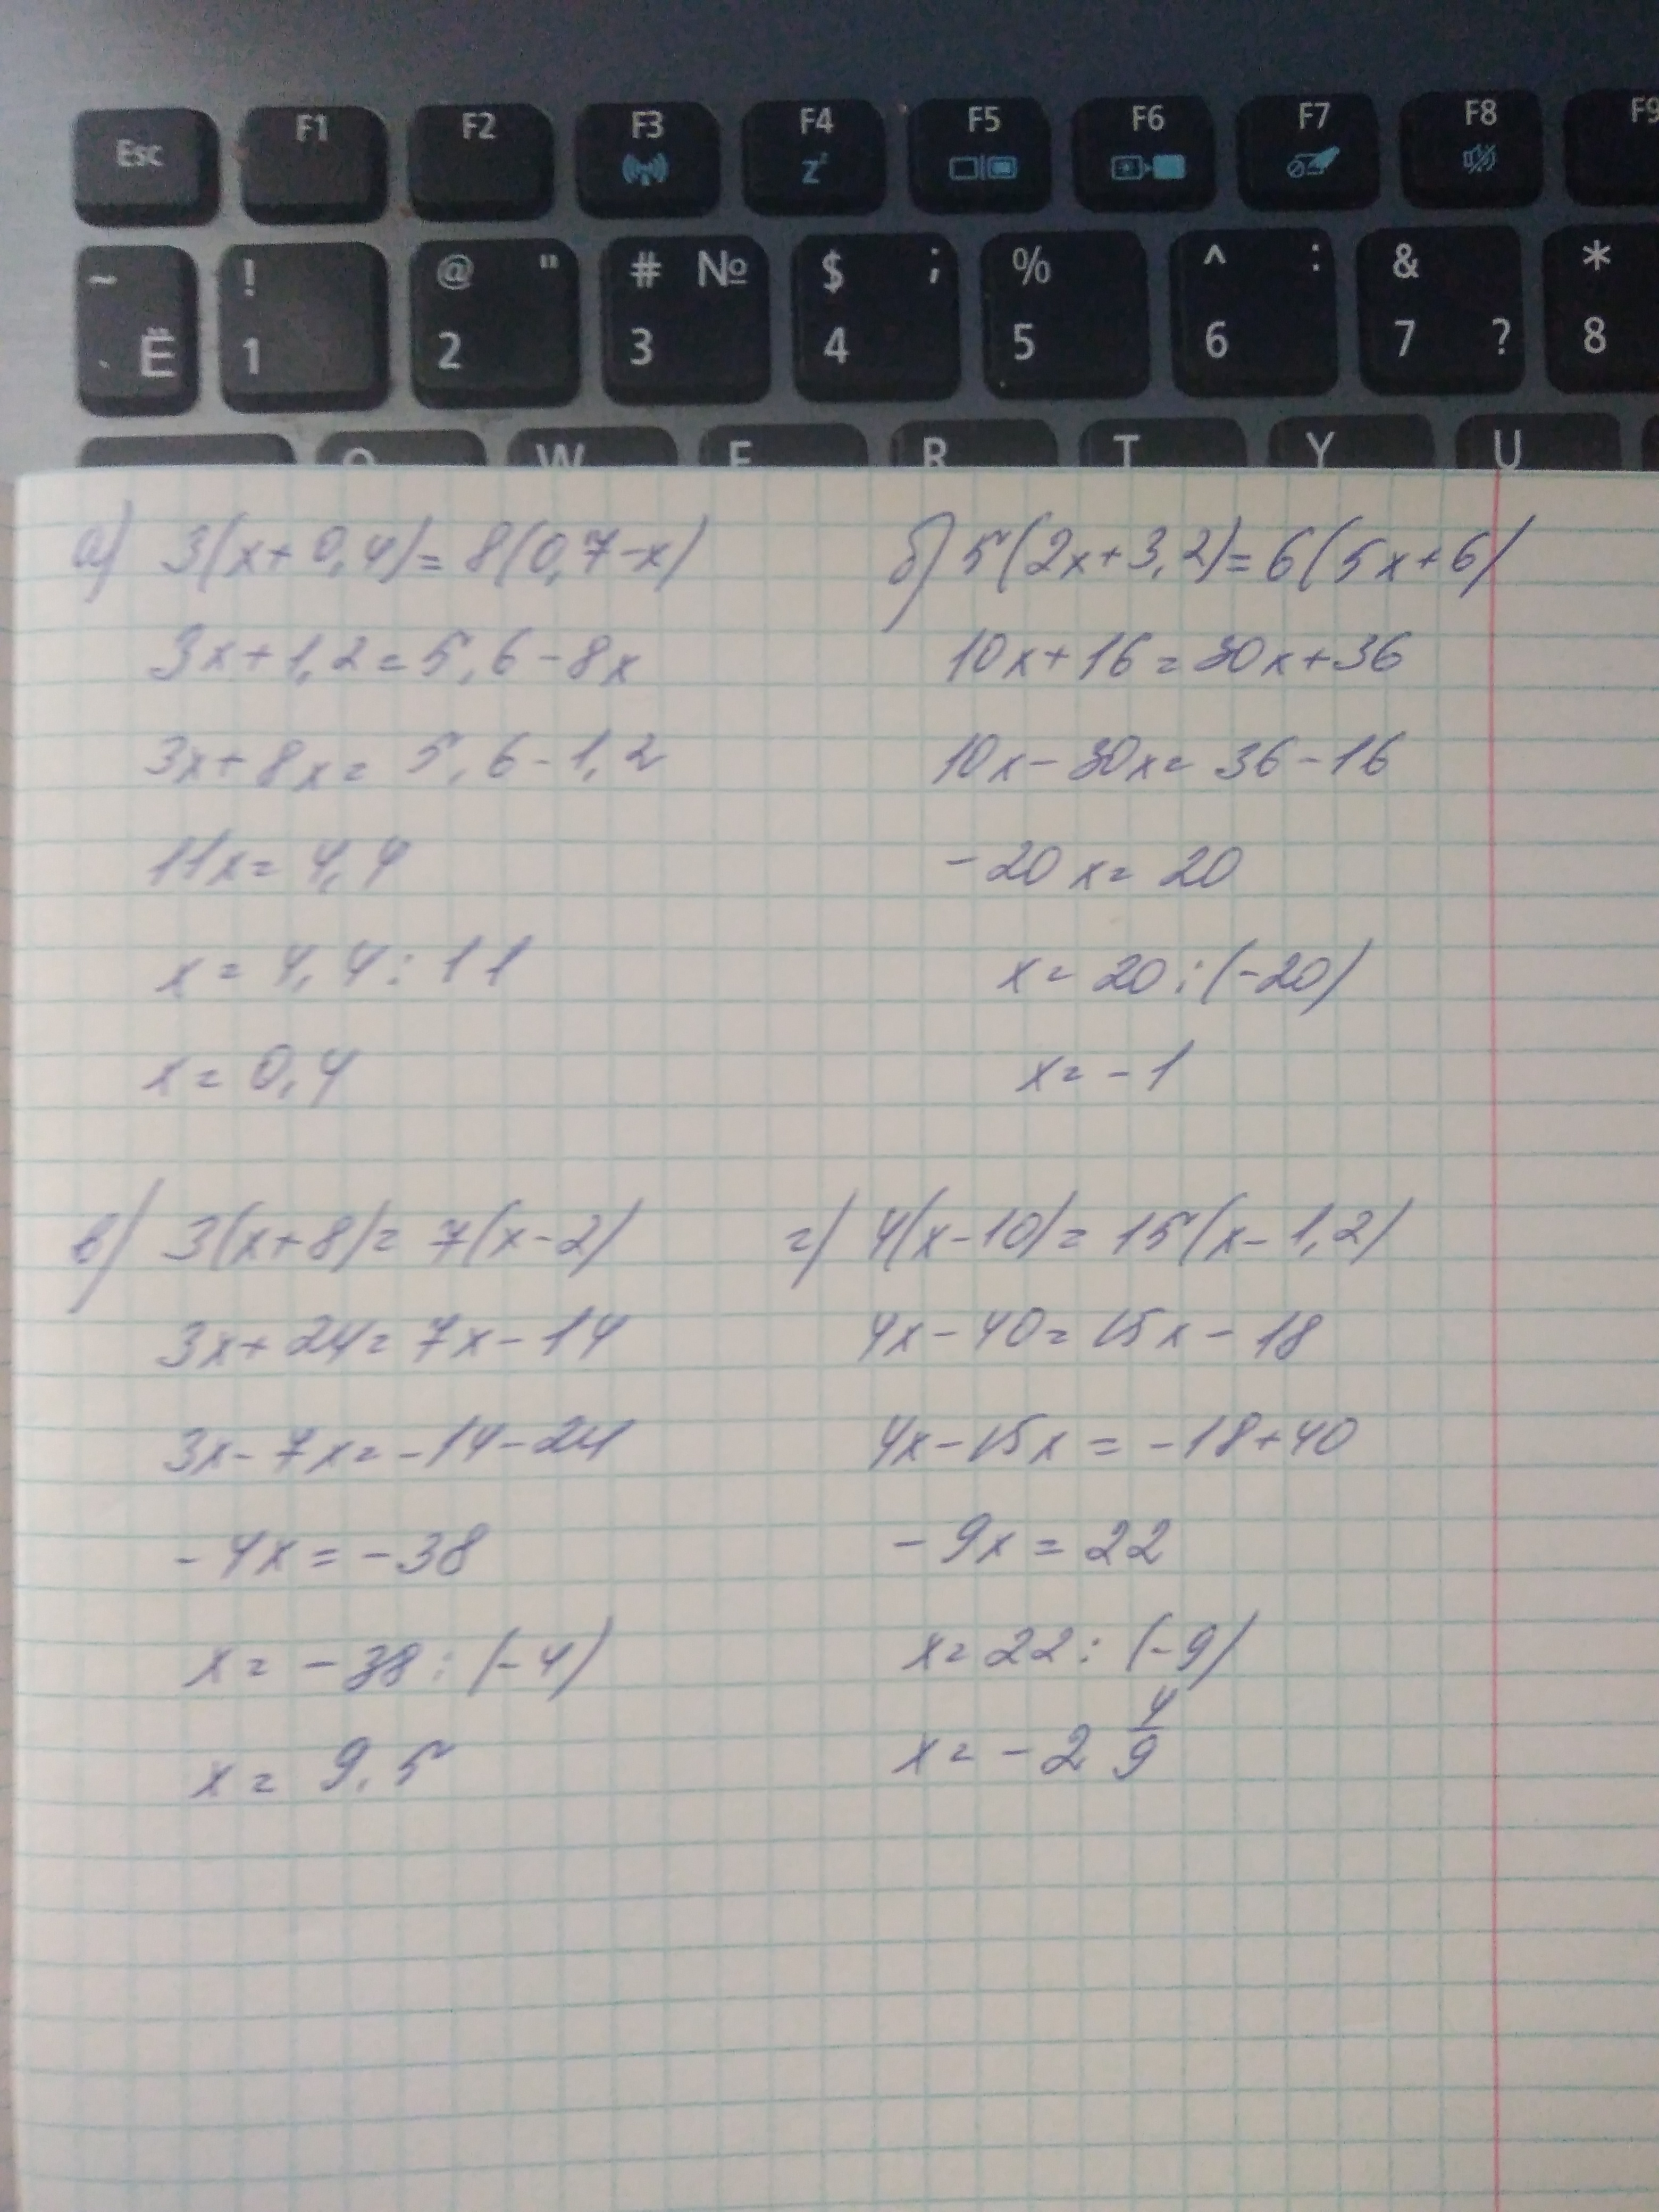 Esc F1 F2 F3 F4 z² F5 F6 F7 F8 F9
~ ` Ё ! 1 @ " 2 # № 3 $ ; 4 % 5 ^ : 6 & 7 ? * 8
Q W E R T Y U
а) 3(x+0,4)=8(0,7-x)
3x+1,2=5,6-8x
3x+8x=5,6-1,2
11x=4,4
x=4,4:11
x=0,4
б) 5(2x+3,2)=6(5x+6)
10x+16=30x+36
10x-30x=36-16
-20x=20
x=20:(-20)
x=-1
в) 3(x+8)=7(x-2)
3x+24=7x-14
3x-7x=-14-24
-4x=-38
x=-38:(-4)
x=9,5
г) 4(x-10)=15(x-1,2)
4x-40=15x-18
4x-15x=-18+40
-9x=22
x=22:(-9)
x=-2 4/9